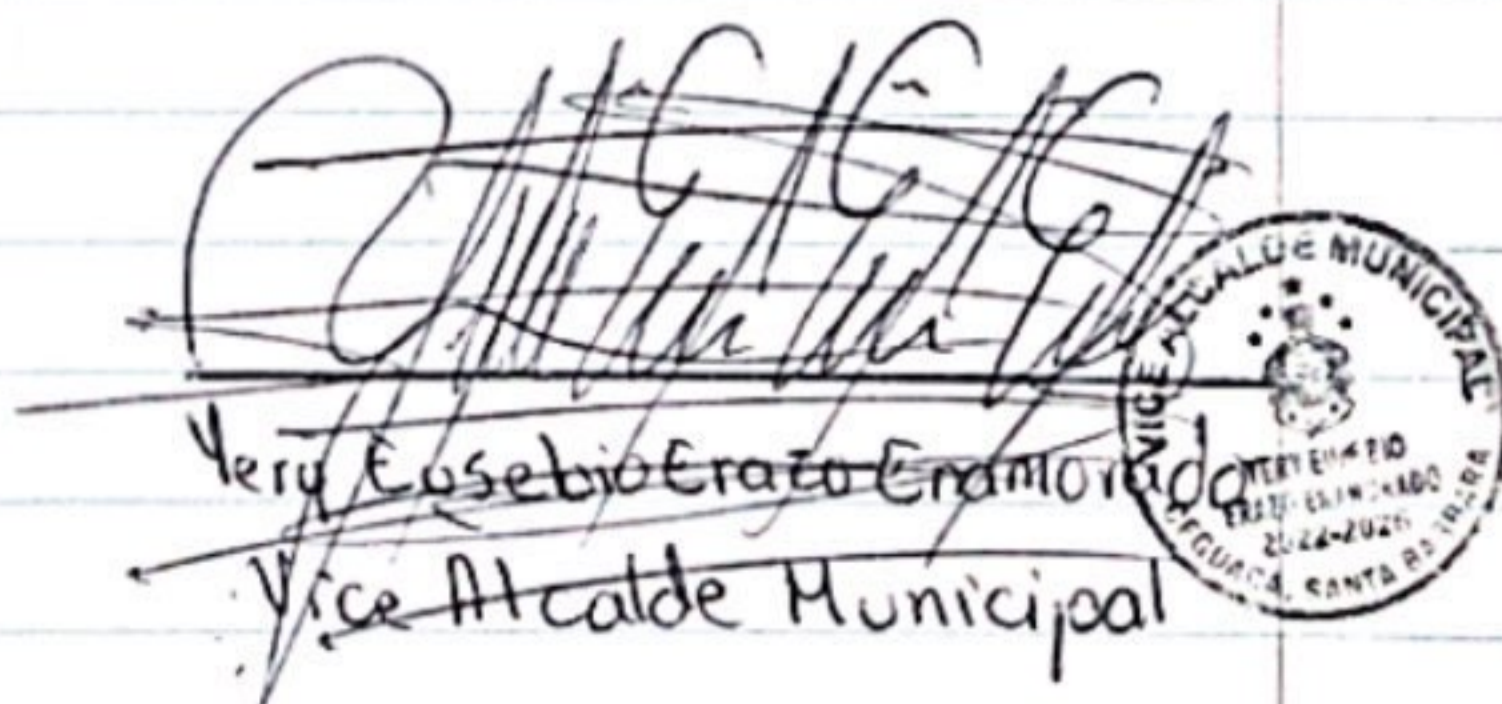 Yery Eusebio Erazo Enamorado
Vice Alcalde Municipal
VICE ALCALDE MUNICIPAL
YERY EUSEBIO
ERAZO ENAMORADO
2022-2026
CEGUACA, SANTA BARBARA